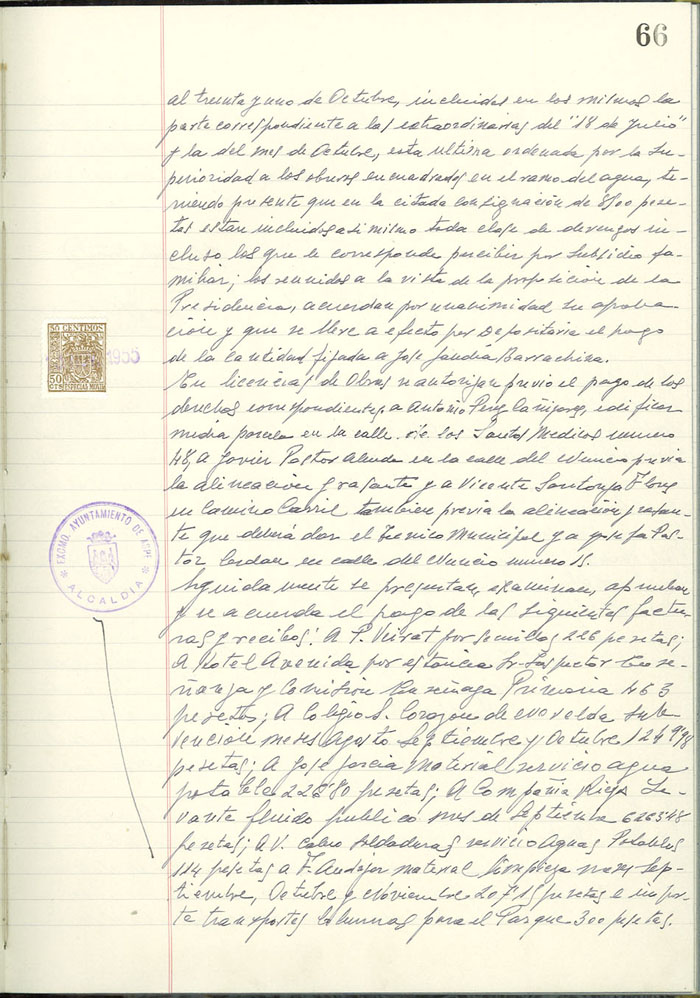 66
al treinta y uno de Octubre, incluidas en los mismos la
parte correspondiente a las extraordinarias del "18 de Julio"
y la del mes de Octubre, esta ultima ordenada por la Su-
perioridad a los obreros encuadrados en el ramo del agua, te-
niendo presente que en la citada consignación de 8500 pese-
tas estan incluidos asi mismo toda clase de devengos in-
cluso los que le corresponda percibir por Subsidio fa-
miliar; los reunidos a la vista de la proposición de la
Presidencia, acuerdan por unanimidad su aproba-
ción y que se lleve a efecto por Depositaria el pago
de la cantidad fijada a Jose Barrachina.
En licencias de Obras se autorizan previo el pago de los
derechos correspondientes a Antonio Perez Cañizares, edificar
media parcela en la calle de los Santos Medicos numero
48, a Javier Pastor en la calle del previa
la alineación y rasante y a Vicente Santonja Flores
en Camino Carril tambien previa la alineación y rasan-
te que deberá dar el Tecnico Municipal y a Josefa Pas-
tor Cerdan en calle del numero 15.
Seguidamente se presentan, examinan, aprueban
y se acuerda el pago de las siguientes factu-
ras y recibos: A P. por semillas 226 pesetas;
A Hotel Avenida por estancia Sr. Inspector Ense-
ñanza y Comisión Enseñaza Primaria 463
pesetas; A Colegio S. Corazon de Novelda sub-
vención meses Agosto Septiembre y Octubre 1249'98
pesetas; A Jose Garcia Material servicio agua
potable 222'80 pesetas; A Compañia Riegos Le-
vante fluido publico mes de Septiembre 6263'48
pesetas; A V. Calvo Soldaduras servicio Aguas Potables
114 pesetas a F. Andujar material limpieza meses Sep-
tiembre, Octubre y Noviembre 207'15 pesetas e impor-
te transportes columnas para el Parque 300 pesetas.
50 CENTIMOS
1955
50 CTS
ESPECIAL MOVIL
EXCMO. AYUNTAMIENTO DE ASPE
ALCALDIA